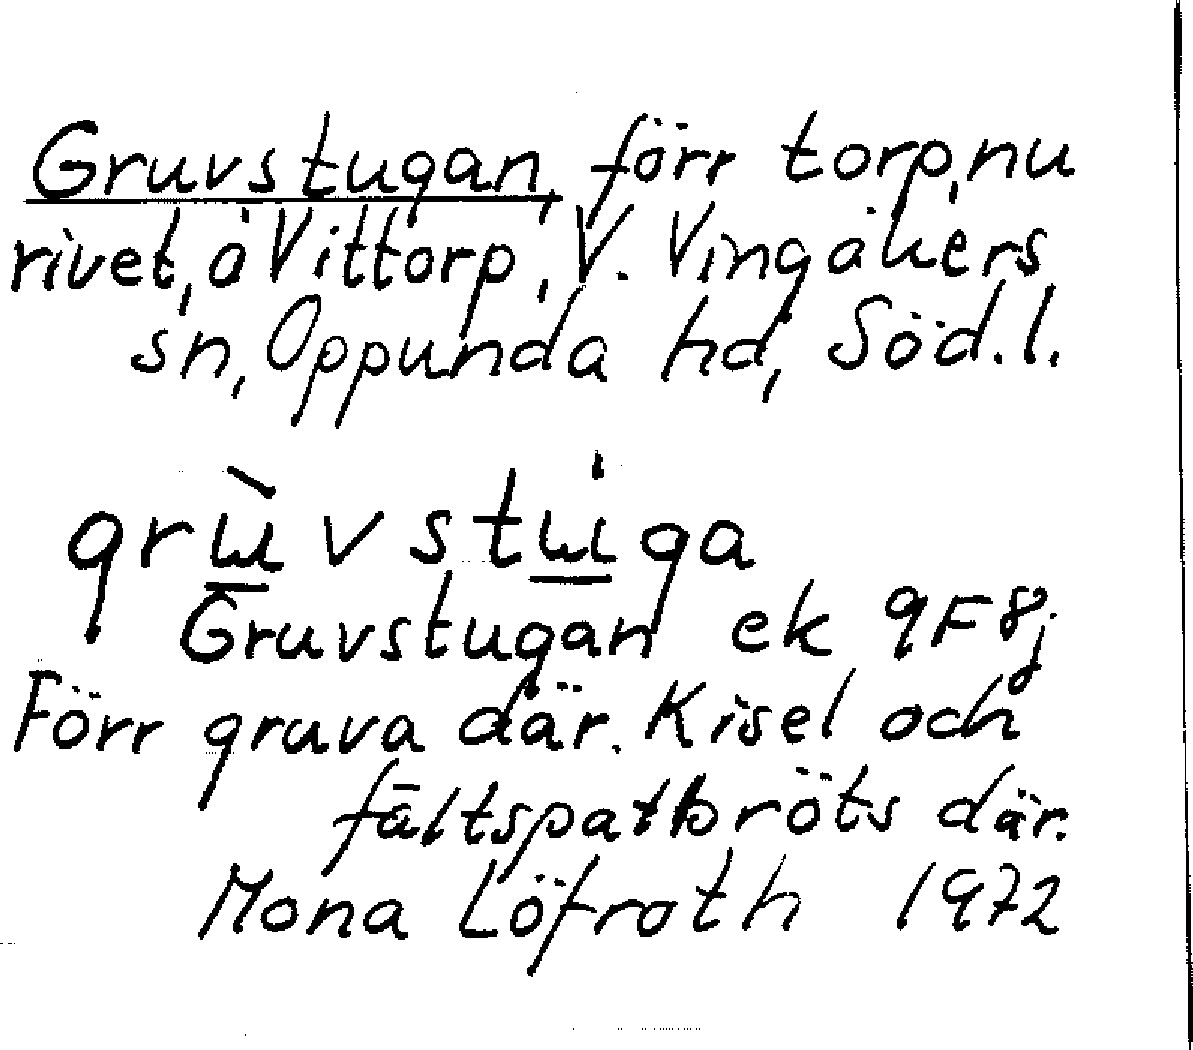 Gruvstugan, förr torp, nu
rivet, å Vittorp, V. Vingåkers
sn, Oppunda hd, Söd.l.
grɯ̀vstɯ̍ga
Gruvstugan ek 9F8j
Förr gruva där. Kisel och
fältspatbröts där.
Mona Löfroth 1972